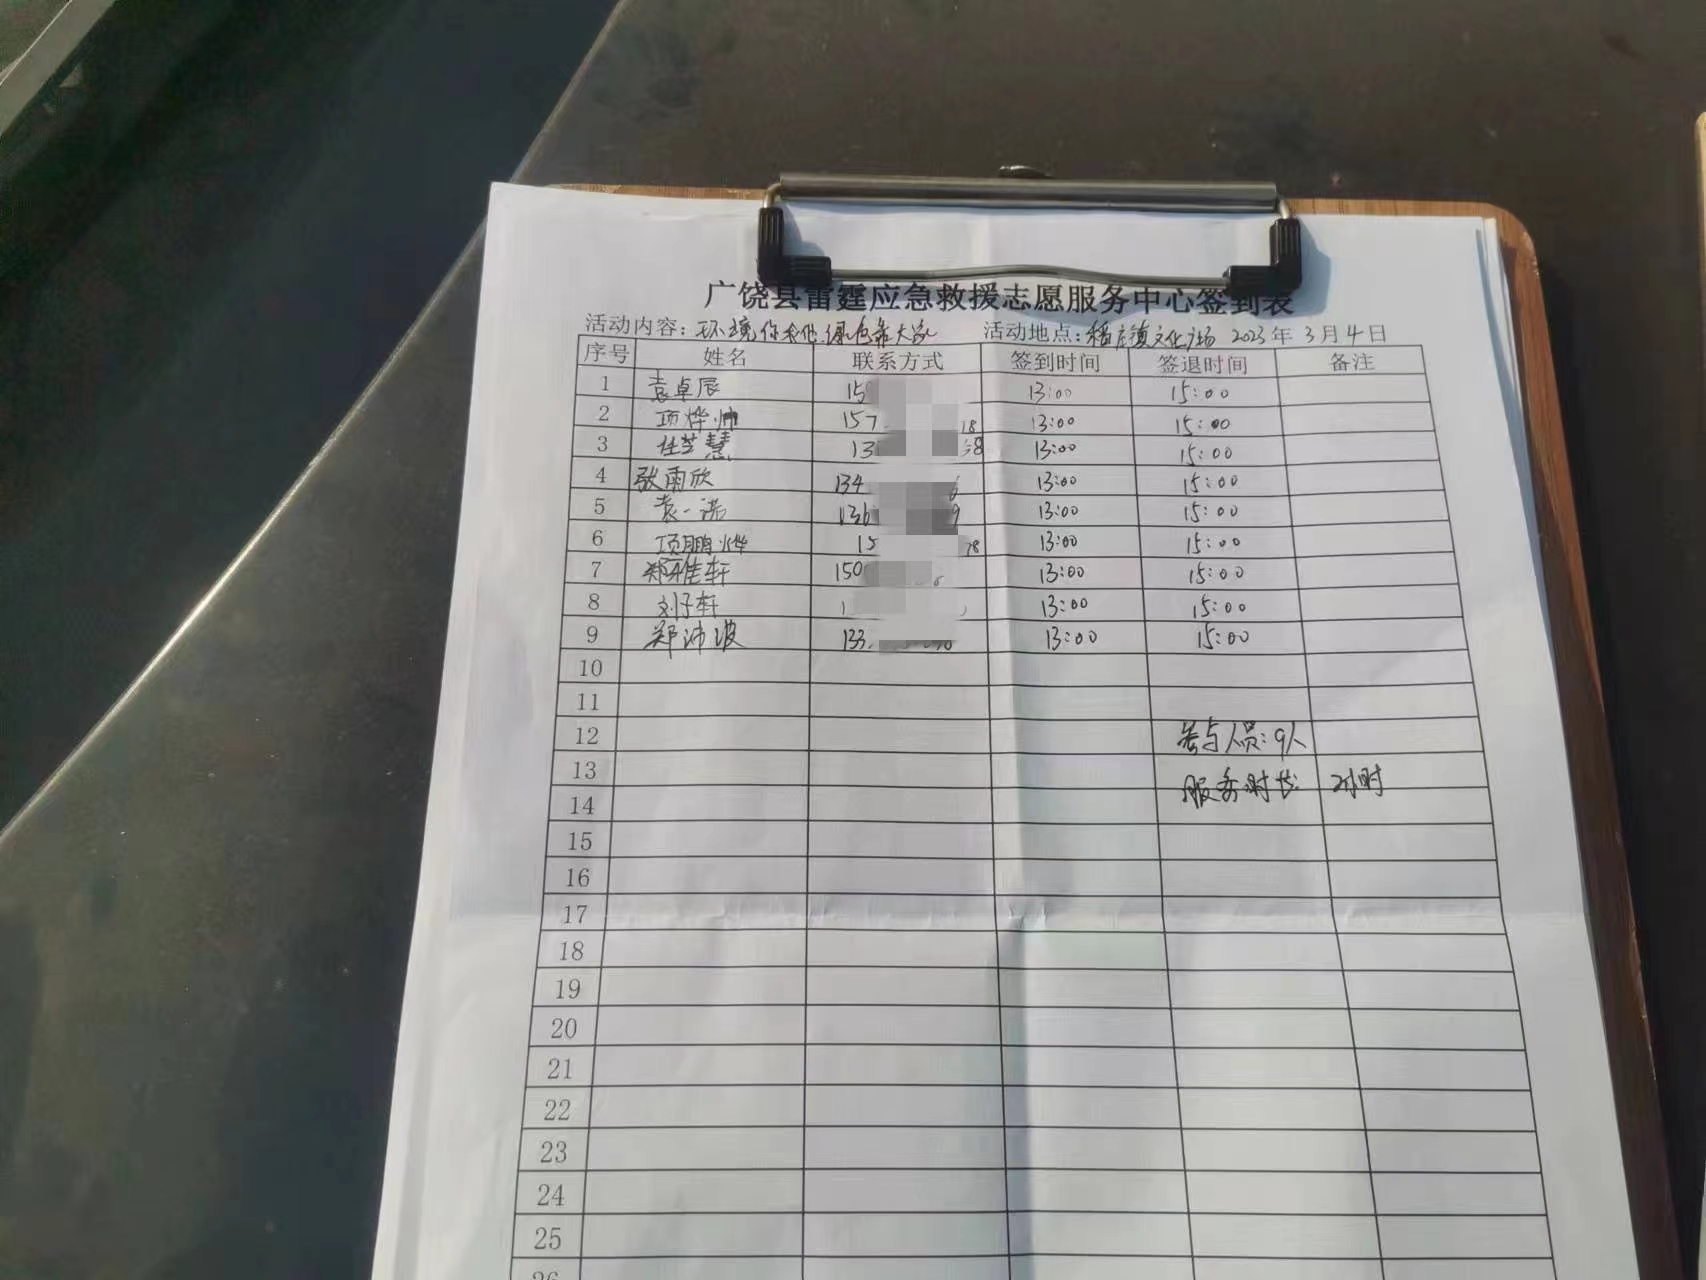 广饶县雷霆应急救援志愿服务中心签到表
活动内容：环境你我他.绿色靠大家 活动地点：稻庄镇文化广场 2023年 3月4日
序号 姓名 联系方式 签到时间 签退时间 备注
1 袁卓辰 15 13:00 15:00
2 项烨帅 157 18 13:00 15:00
3 杜芝慧 13 38 13:00 15:00
4 张雨欣 134 6 13:00 15:00
5 袁一诺 136 9 13:00 15:00
6 项鹏烨 15 78 13:00 15:00
7 郑雅轩 150 6 13:00 15:00
8 刘子轩 1 13:00 15:00
9 郑沛波 133 13:00 15:00
10
11
12 参与人员：9人
13
服务时长 2小时
14
15
16
17
18
19
20
21
22
23
24
25
26